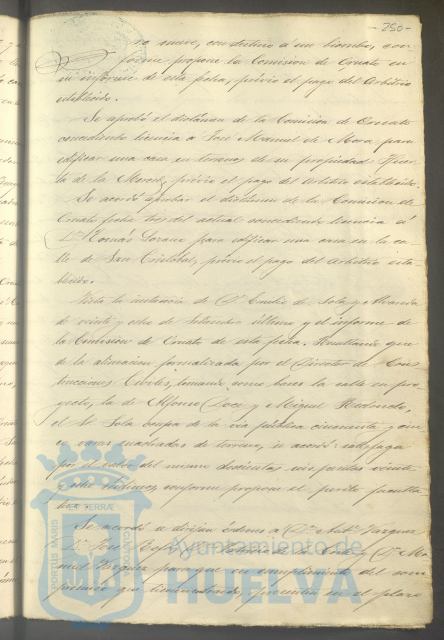 - 250 -
no nueve, con destino á un biombo, con-
forme propone la Comision de Ornato en
su informe de esta fecha, prévio el pago del Arbitrio
establecido.
Se aprobó el dictámen de la Comision de Ornato
concediendo licencia á José Manuel de Mora, para
edificar una casa en terreno de su propiedad,
de la Merced, prévio el pago del Arbitrio establecido.
Se acordó aprobar el dictámen de la Comision de
Ornato fecha tres del actual concediendo licencia á
Dn Tomás Lozano para edificar una casa en la ca-
lle de San Cristobal, prévio el pago del Arbitrio esta-
blecido.
Vista la instancia de Dn Emilio de Sola y
de veinte y ocho de Setiembre último y el informe de
la Comision de Ornato de esta fecha. Resultando que
de la alineacion formalizada por el Director de Cons
trucciones Civiles, tomando como bases la calle en pro
yecto, la de Alfonso Doce y Miguel Redondo,
el Sr Sola ocupa de la via pública cincuenta y cin
co varas cuadradas de terreno, se acordó satisfaga
por el valor del mismo doscientas seis pesetas veinte
y ocho céntimos conforme propone el perito faculta-
tivo.
Se acordó se dirijan órdenes á Dn Antº Vazquez
Dn José
y Dn Ma
nuel Vazquez para que en cumplimiento del com
promiso que tienen contraido, presenten en el plazo
PORTUS MARIS
ET TERRAE
CUSTODIA
Ayuntamiento de
HUELVA